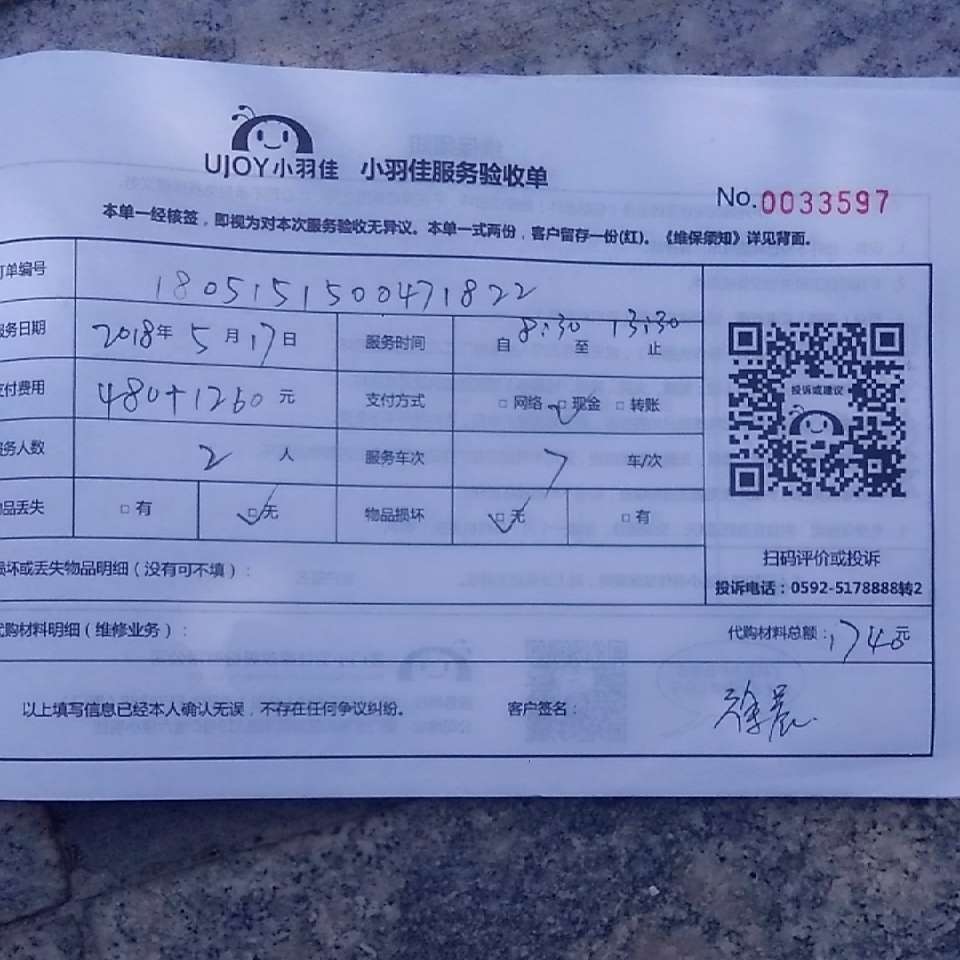 UJOY小羽佳 小羽佳服务验收单
No.0033597
本单一经核签，即视为对本次服务验收无异议。本单一式两份，客户留存一份(红)。《维保须知》详见背面。
订单编号 1805151500471822
服务日期 2018年5月17日 服务时间 自8:30至13:30止
支付费用 480+1260元 支付方式 □网络 □现金 □转账
投诉或建议
服务人数 2人 服务车次 7车/次
物品丢失 □有 □无 物品损坏 □无 □有
损坏或丢失物品明细（没有可不填）:
扫码评价或投诉
投诉电话：0592-5178888转2
代购材料明细（维修业务）: 代购材料总额:1740元
以上填写信息已经本人确认无误，不存在任何争议纠纷。 客户签名: